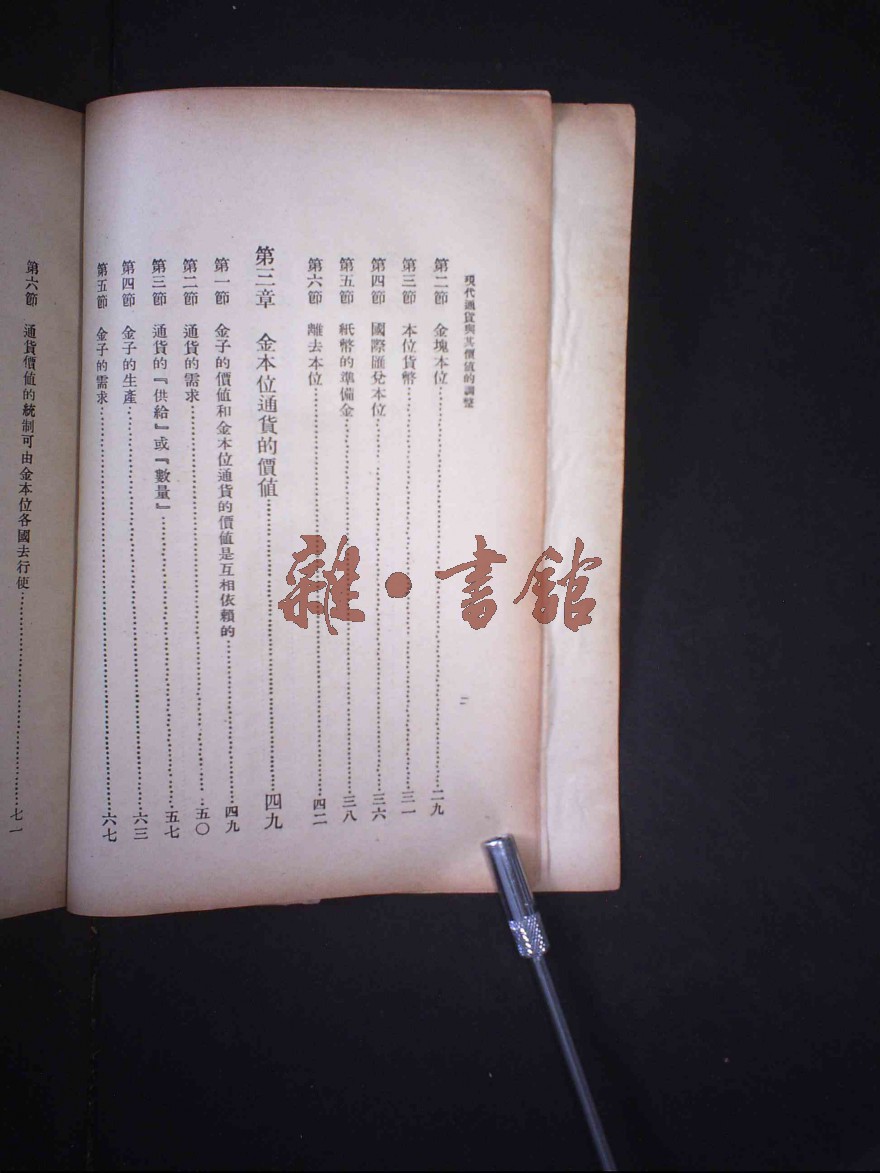 現代通貨與其價值的調整
二
第二節 金塊本位……二九
第三節 本位貨幣……三一
第四節 國際匯兌本位……三六
第五節 紙幣的準備金……三八
第六節 離去本位……四二
第三章 金本位通貨的價値……四九
第一節 金子的價値和金本位通貨的價値是互相依賴的……四九
第二節 通貨的需求……五〇
第三節 通貨的『供給』或『數量』……五七
第四節 金子的生產……六三
第五節 金子的需求……六七
第六節 通貨價値的統制可由金本位各國去行使……七一
雜·書館